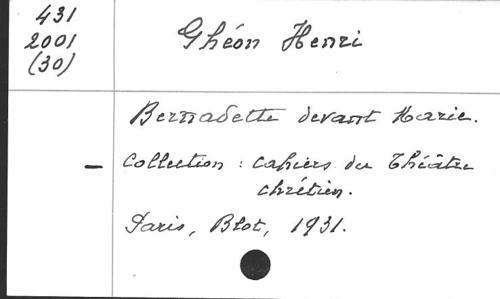 431
2001
(30)
Ghéon Henri
Bernadette devant Marie.
- Collection : Cahiers du Théâtre
chrétien.
Paris, Blot, 1931.